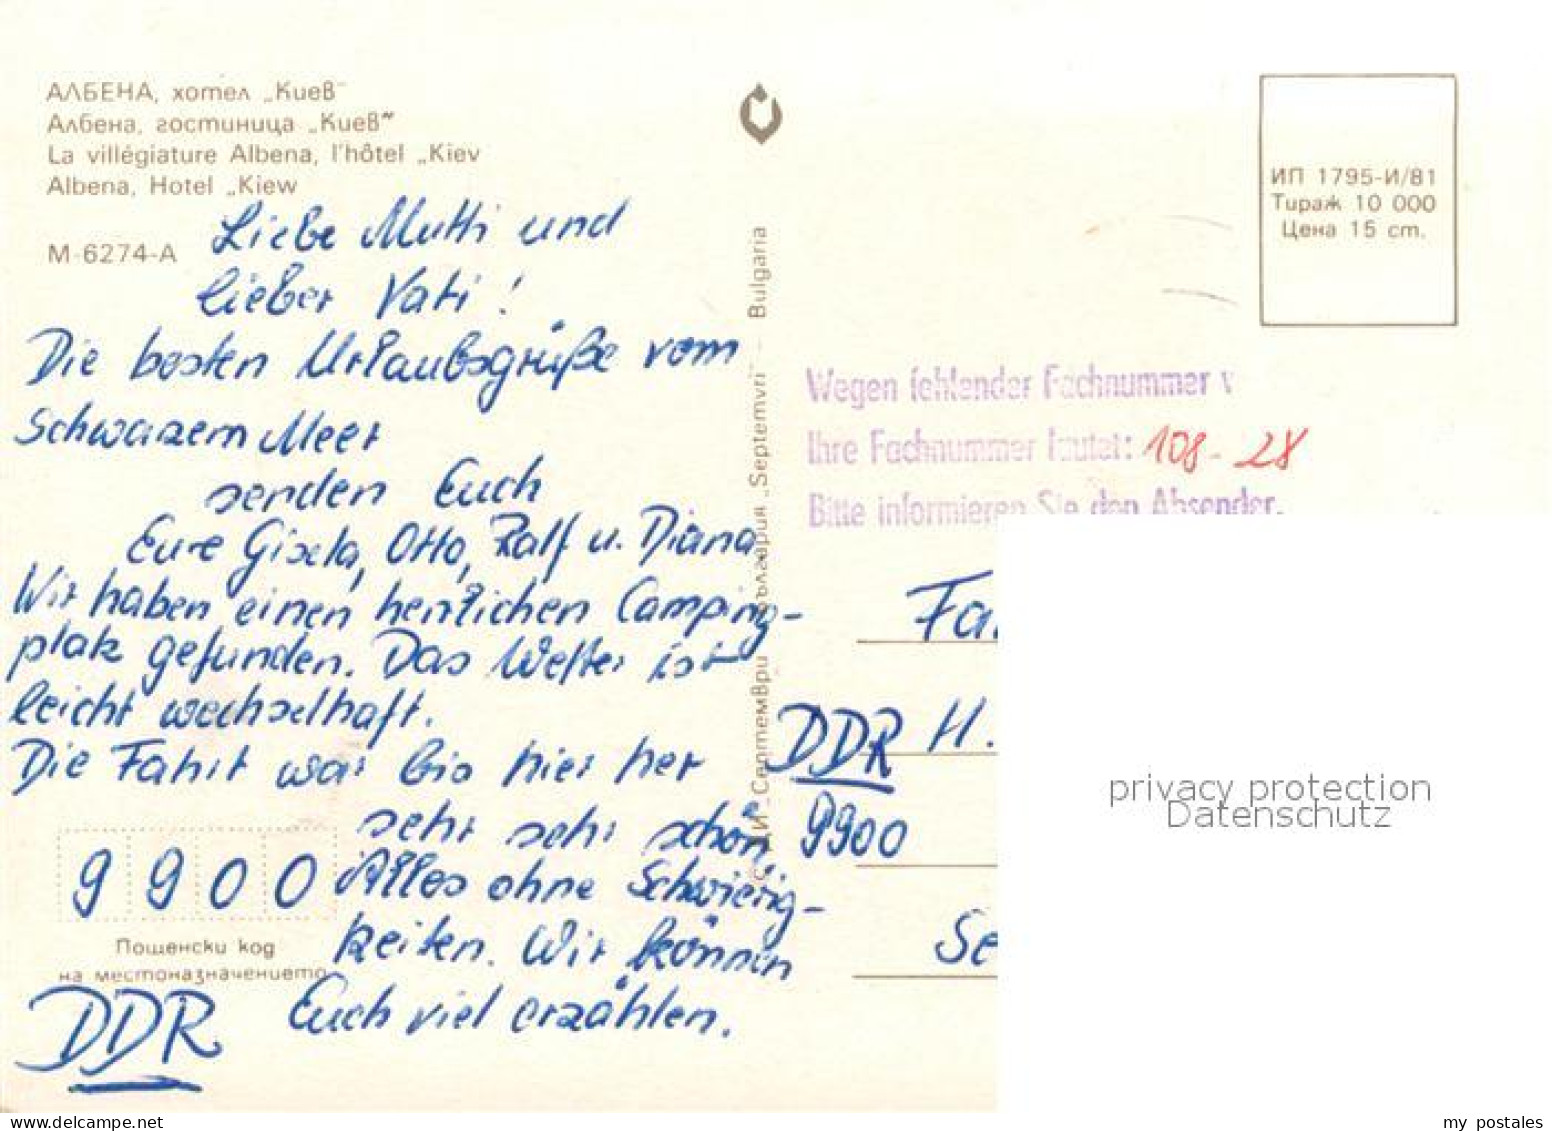 АЛБЕНА, хотел „Киев“
Албена, гостиница „Киев“
La villégiature Albena, l'hôtel „Kiev
Albena, Hotel „Kiew
М-6274-А
Liebe Mutti und
lieber Vati!
Die besten Urlaubsgrüße vom
Schwarzem Meer
senden Euch
Eure Gisela, Otto, Ralf u. Diana
Wir haben einen herrlichen Camping-
platz gefunden. Das Wetter ist
leicht wechselhaft.
Die Fahrt war bis hier her
sehr sehr schön,
Alles ohne Schwierig-
keiten. Wir können
Euch viel erzählen.
9 9 0 0
Пощенски код
на местоназначението
DDR
ДИ „Септември България „Septemvri“ – Bulgaria
ИП 1795-И/81
Тираж 10 000
Цена 15 ст.
Wegen fehlender Fachnummer v
Ihre Fachnummer lautet: 108-28
Bitte informieren Sie den Absender.
Fa
DDR H.
9900
Se
privacy protection
Datenschutz
my postales